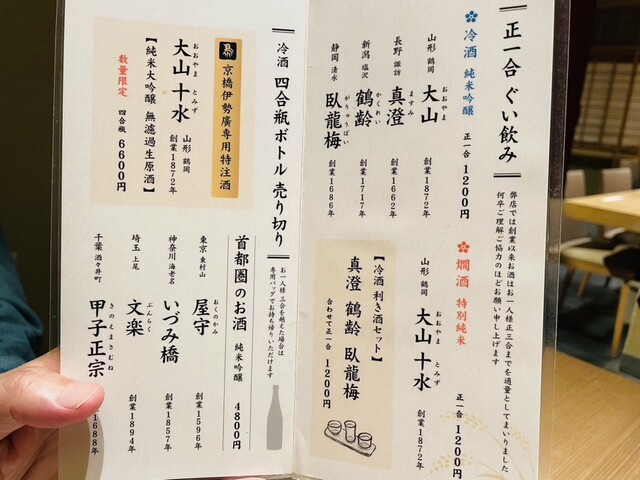 正一合 ぐい飲み
弊店では創業以来お酒はお一人様正三合までを適量としてまいりました
何卒ご理解ご協力のほどお願い申し上げます
冷酒 純米吟醸 正一合 1200円
山形 鶴岡 大山 おおやま 創業1872年
長野 諏訪 真澄 ますみ 創業1662年
新潟 塩沢 鶴齢 かくれい 創業1717年
静岡 清水 臥龍梅 がりゅうばい 創業1686年
燗酒 特別純米 正一合 1200円
山形 鶴岡 大山 十水 おおやま とみず 創業1872年
【冷酒 利き酒セット】
真澄 鶴齢 臥龍梅
合わせて正一合 1200円
冷酒 四合瓶ボトル 売り切り
お一人様 三合を越えた場合は
専用バッグでお持ち帰りいただけます
鳥 京橋伊勢廣専用特注酒
大山 十水 おおやま とみず 山形 鶴岡 創業1872年
【純米大吟醸 無濾過生原酒】
数量限定 四合瓶 6600円
首都圏のお酒 純米吟醸 4800円
東京 東村山 屋守 おくのかみ 創業1596年
神奈川 海老名 いづみ橋 創業1857年
埼玉 上尾 文楽 ぶんらく 創業1894年
千葉 酒々井町 甲子正宗 きのえまさむね 1688年